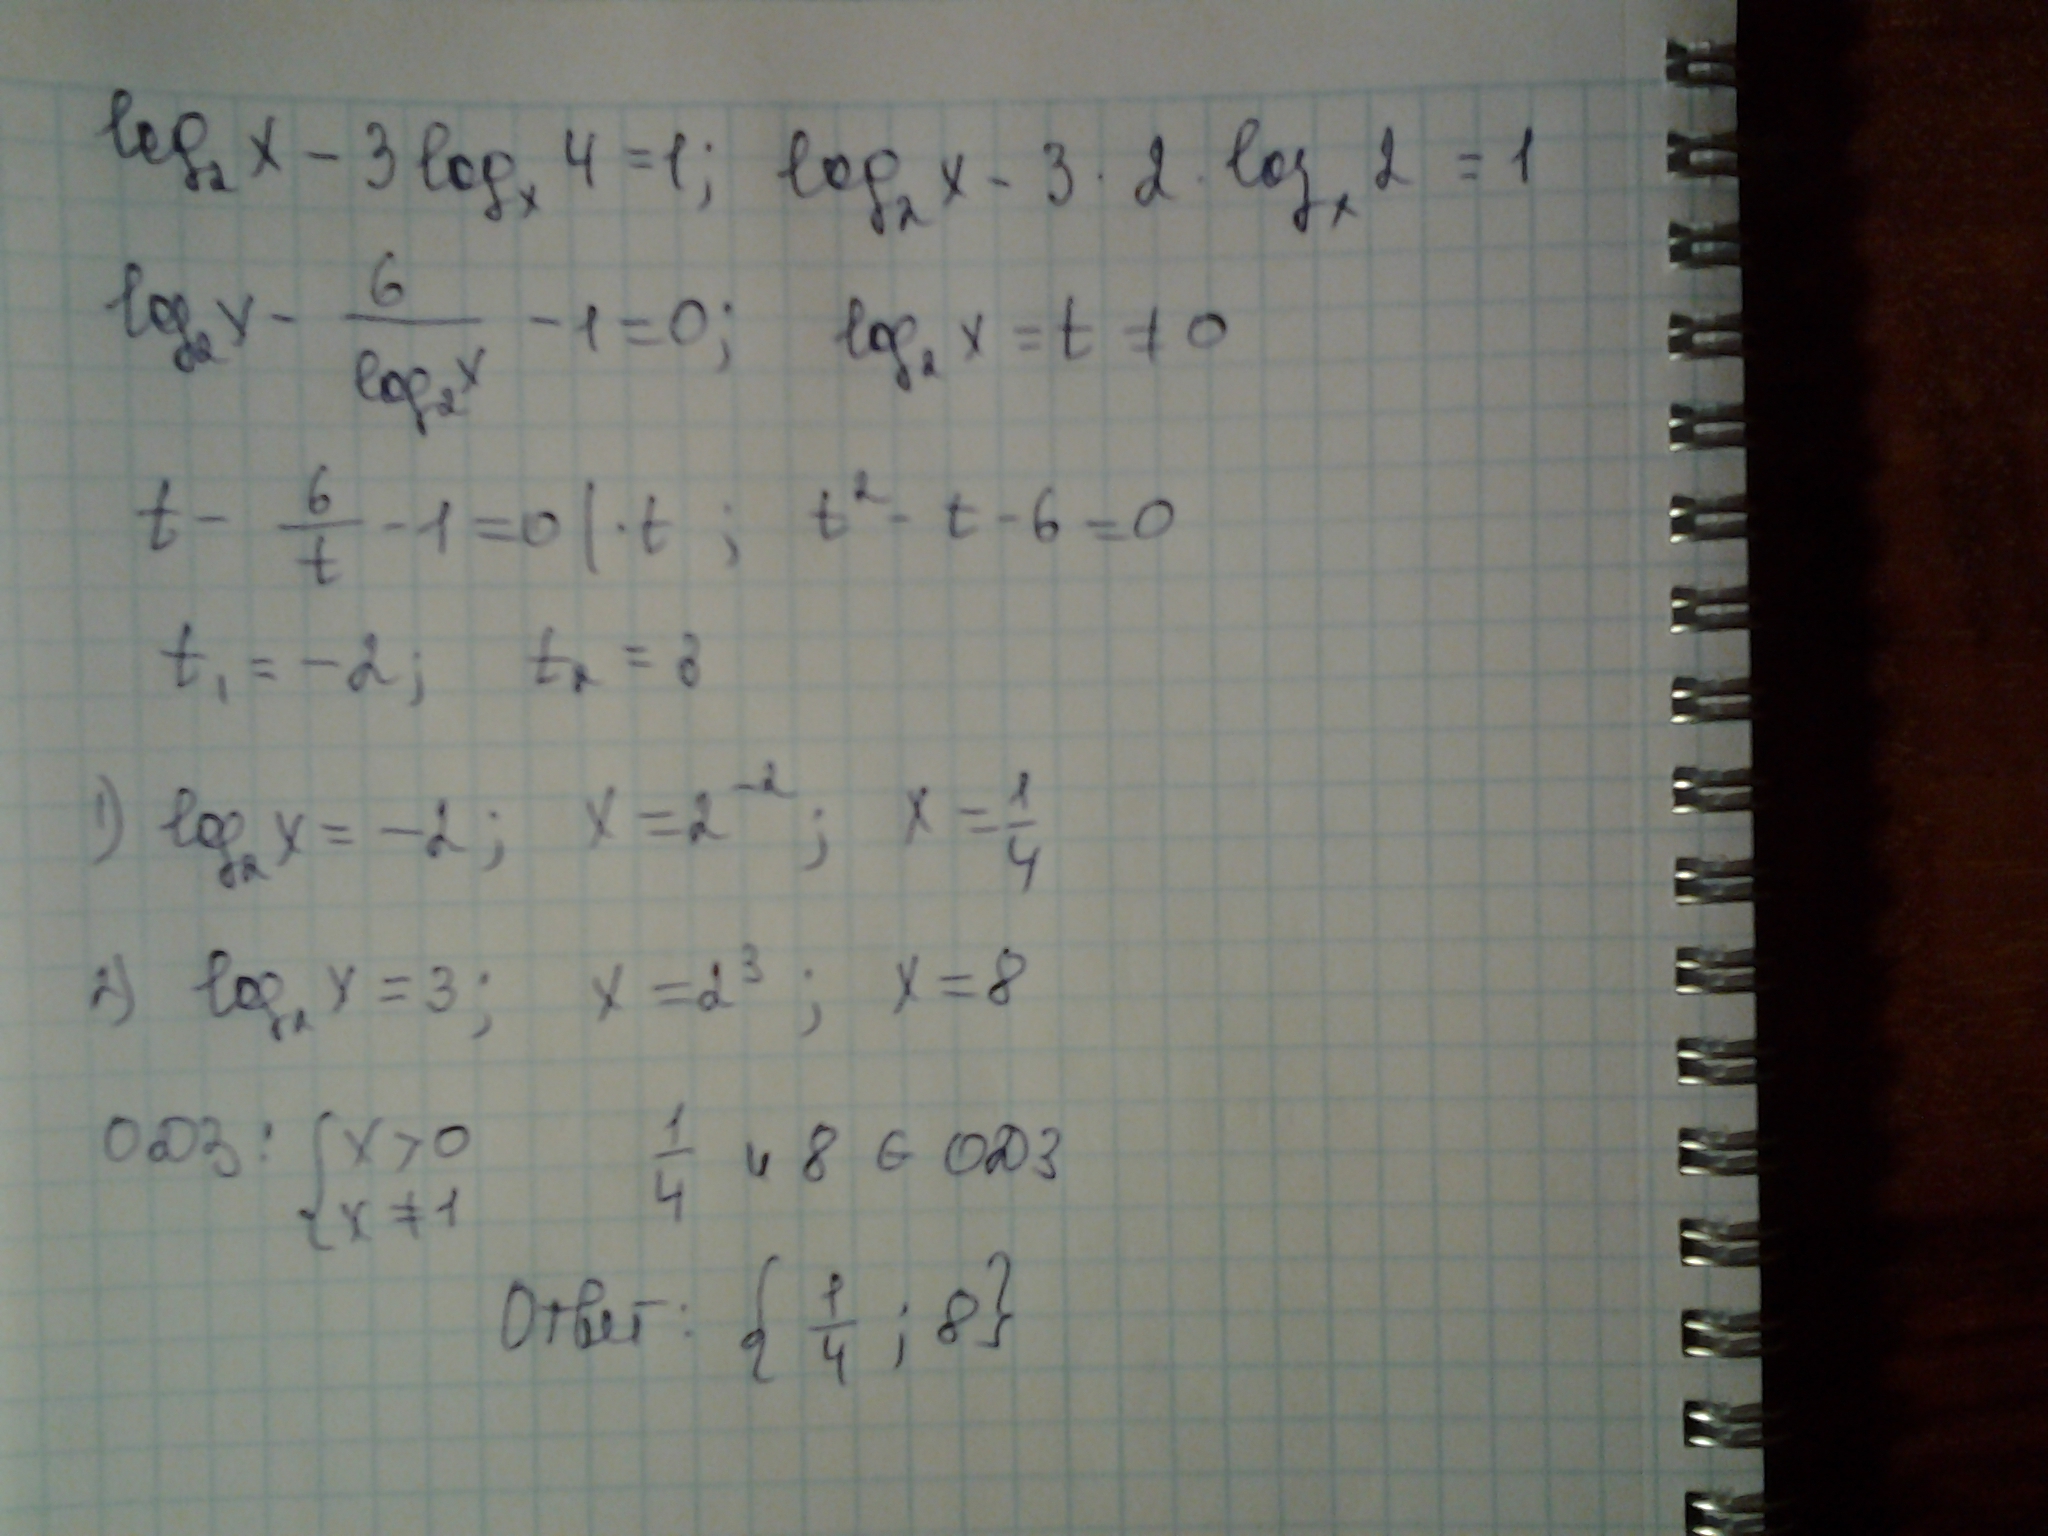 log₂x - 3logₓ4 = 1; log₂x - 3 · 2 · logₓ2 = 1
log₂x - 6/log₂x - 1 = 0; log₂x = t ≠ 0
t - 6/t - 1 = 0 | · t; t² - t - 6 = 0
t₁ = -2; t₂ = 3
1) log₂x = -2; x = 2⁻²; x = 1/4
2) log₂x = 3; x = 2³; x = 8
ОДЗ: { x > 0 1/4 и 8 ∈ ОДЗ
x ≠ 1
Ответ: {1/4; 8}